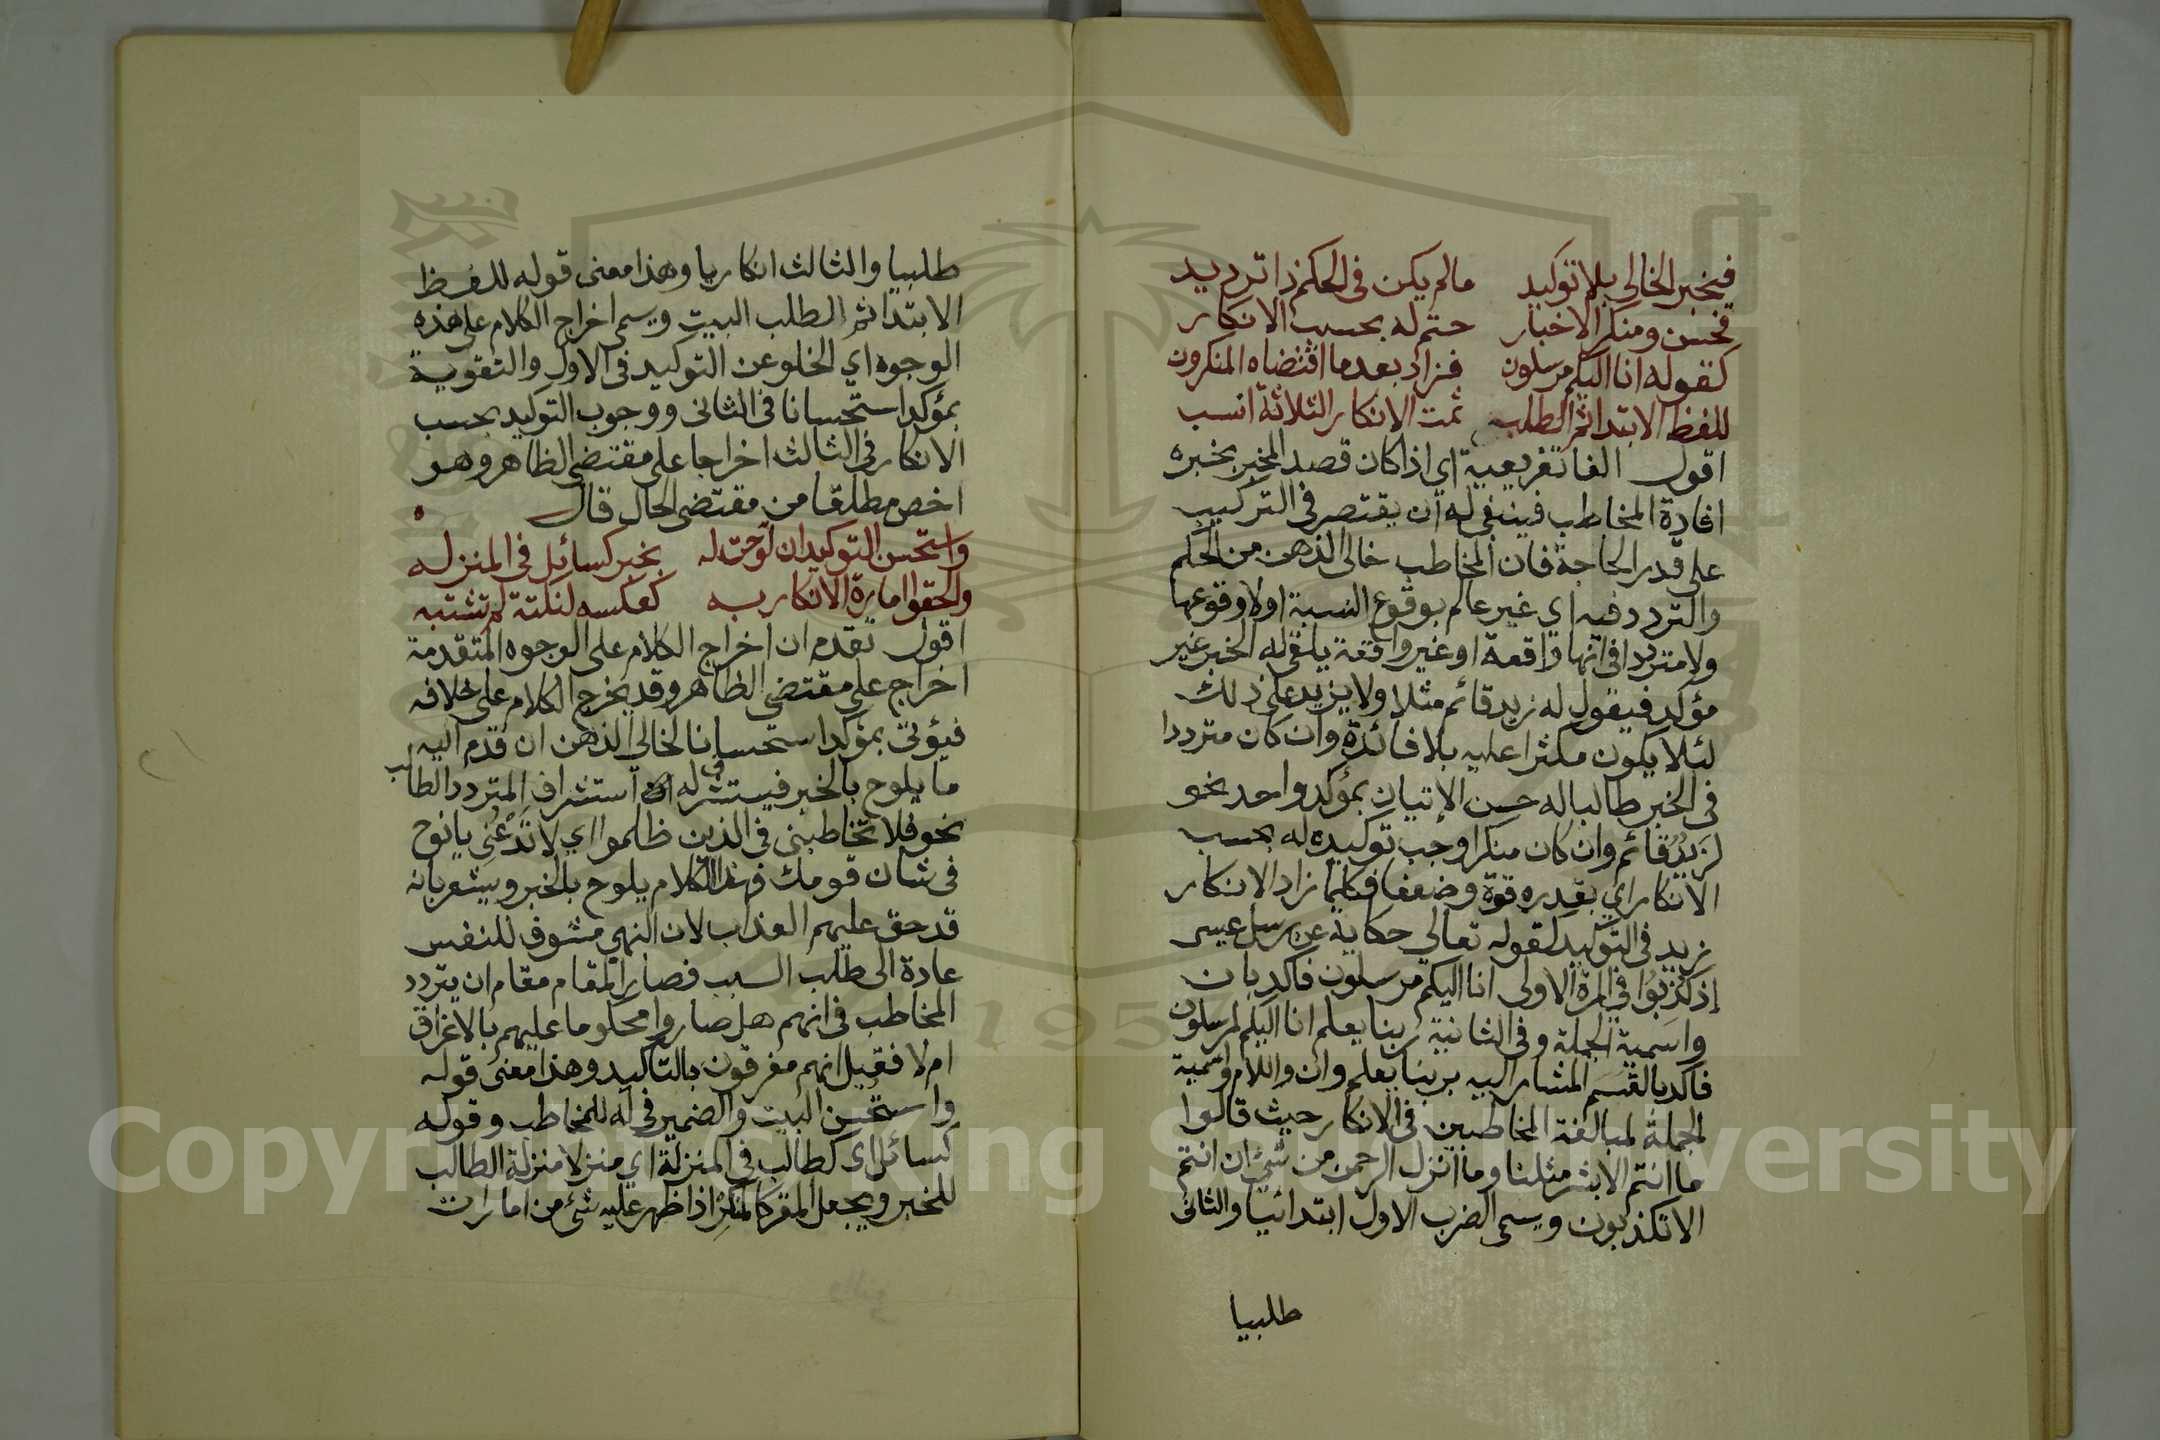 فيخبر الخالي بلا توكيد ما لم يكن في الحكم ذا ترديد
فحسن ومنكر الاخبار حتم له بحسب الانكار
كقوله انا اليكم مرسلون فزاد بعد ما اقتضاه المنكرون
للفظ الابتداء ثم الطلب ثمت الانكار الثلاثة انسب
اقول الفا تفريعية اي اذا كان قصد المخبر بخبره
افادة المخاطب فينبغي له ان يقتصر في التركيب
على قدر الحاجة فان المخاطب خالى الذهن من الحكم
والتردد فيه اي غير عالم بوقوع النسبة اولا وقوعها
ولا مترددا في انها واقعة او غير واقعة يلقى له الخبر غير
مؤكد فيقول له زيد قائم مثلا ولا يزيد على ذلك
لئلا يكون مكثرا عليه بلا فائدة وان كان مترددا
في الخبر طالبا له حسن الإتيان بمؤكد واحد نحو
لزيد قائم وان كان منكرا وجب توكيده له بحسب
الانكار اي بقدره قوة وضعفا فكلما زاد الانكار
زيد في التوكيد كقوله تعالى حكاية عن رسل عيسى
إذ كذبوا في المرة الاولى انا اليكم مرسلون فاكد بان
واسمية الجملة وفى الثانية ربنا يعلم انا اليكم لمرسلون
فاكد بالقسم المشار اليه بربنا يعلم وان واللام واسمية
الجملة لمبالغة المخاطبين في الانكار حيث قالوا
ما انتم الا بشر مثلنا وما انزل الرحمن من شيئ ان انتم
الا تكذبون ويسمى الضرب الاول ابتدائيا والثانى
طلبيا
طلبيا والثالث انكاريا وهذا معنى قوله للفظ
الابتدا ثم الطلب البيت ويسمى اخراج الكلام على هذه
الوجوه اي الخلو عن التوكيد في الاول والتقوية
بمؤكد استحسانا في الثانى ووجوب التوكيد بحسب
الانكار في الثالث اخراجا على مقتضى الظاهر وهو
اخص مطلقا من مقتضى الحال قال
واستحسن التوكيد ان لوحت له بخبر كسائل في المنزله
والحقوا امارة الانكار به كعكسه لنكتة لم تشتبه
اقول تقدم ان اخراج الكلام على الوجوه المتقدمة
اخراج على مقتضى الظاهر وقد يخرج الكلام على خلافه
فيؤتى بمؤكد استحسانا لخالي الذهن ان قدم اليه
ما يلوح بالخبر فيستشرف له استشراف المتردد الطالب
نحو فلا تخاطبنى في الذين ظلموا اي لا تدعني يا نوح
في شان قومك فهذا الكلام يلوح بالخبر ويشعر بانه
قد حق عليهم العذاب لان النهي مشوف للنفس
عادة الى طلب السبب فصار المقام مقام ان يتردد
المخاطب في انهم هل صاروا محكوما عليهم بالاغراق
ام لا فقيل انهم مغرقون بالتاكيد وهذا معنى قوله
واستحسن البيت والضمير في له للمخاطب وقوله
كسائل اى كطالب في المنزلة اي منزلا منزلة الطالب
للخبر ويجعل المقر كالمنكر اذا ظهر عليه شئ من امارات
Copyright © King Saud University
1957